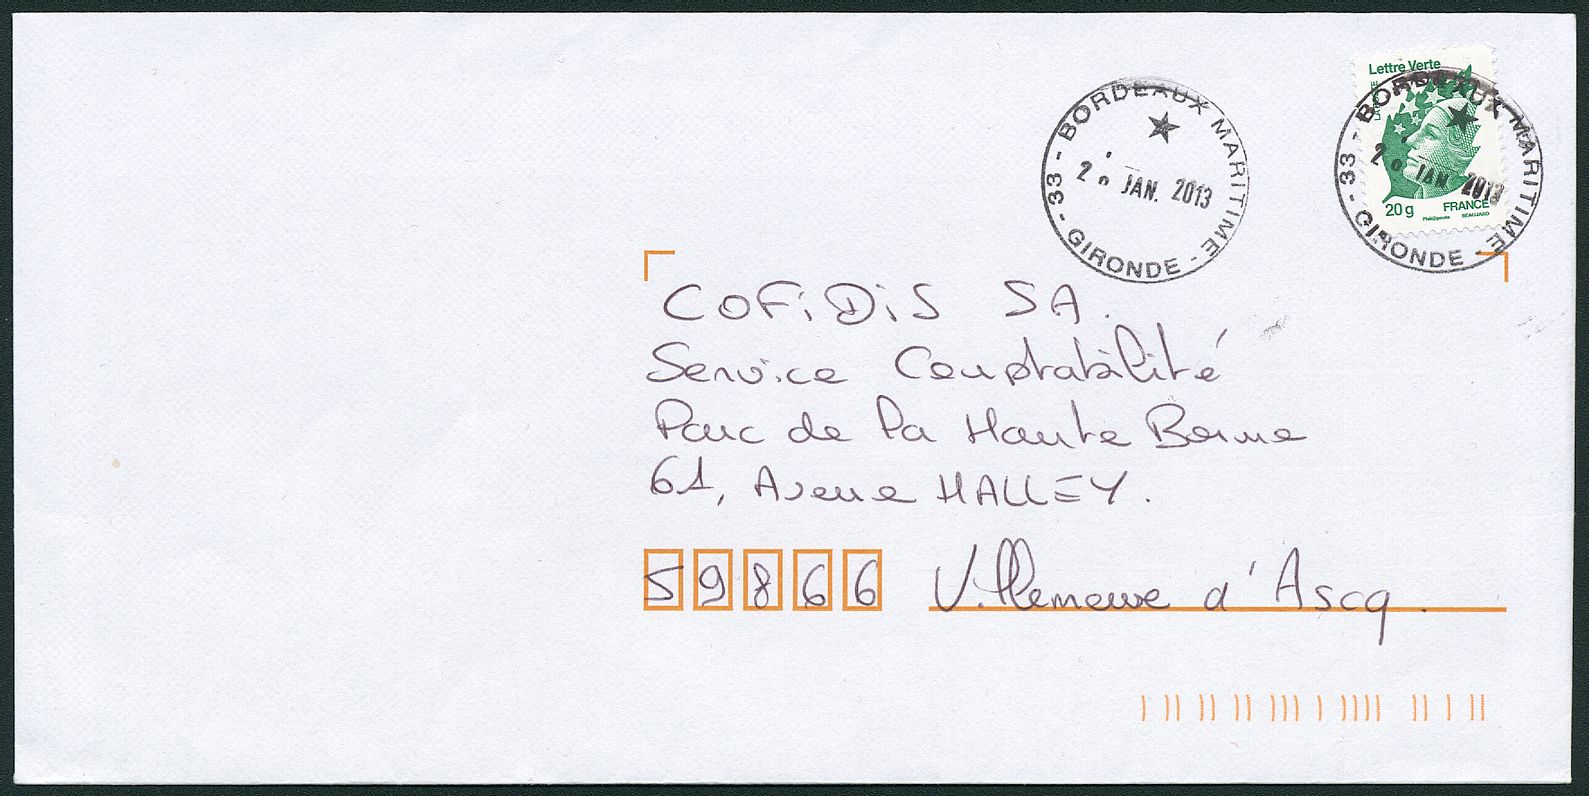 Lettre Verte
20 g FRANCE
Phil@poste BEAUJARD
33 - BORDEAUX MARITIME - GIRONDE
JAN. 2013
33 - BORDEAUX MARITIME - GIRONDE
JAN. 2013
COFiDiS SA.
Service Comptabilité
Parc de la Haute Borne
61, Avenue HALLEY.
59866 Villeneuve d'Ascq.